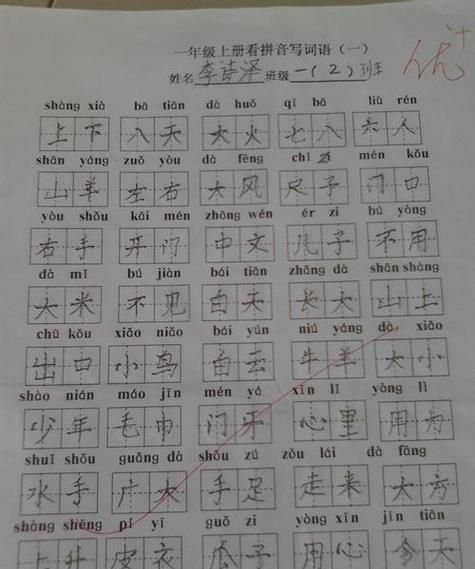 一年级上册看拼音写词语（一）
优+
姓名 李诗泽 班级 一（2）班
shàng xià bā tiān dà huǒ qī bā liù rén
上下 八天 大火 七八 六人
shān yáng zuǒ yòu dà fēng chǐ zi mén kǒu
山羊 左右 大风 尺子 门口
yòu shǒu kāi mén zhōng wén ér zi bú yòng
右手 开门 中文 儿子 不用
dà mǐ bú jiàn bái tiān zhǎng dà shān shàng
大米 不见 白天 长大 山上
chū kǒu xiǎo niǎo bái yún niú yáng dà xiǎo
出口 小鸟 白云 牛羊 大小
shào nián máo jīn mén yá xīn lǐ yòng lì
少年 毛巾 门牙 心里 用力
shuǐ shǒu guǎng dà shǒu zú zǒu lái dà fāng
水手 广大 手足 走来 大方
shàng shēng pí yī guā zi yòng xīn jīn tiān
上升 皮衣 瓜子 用心 今天